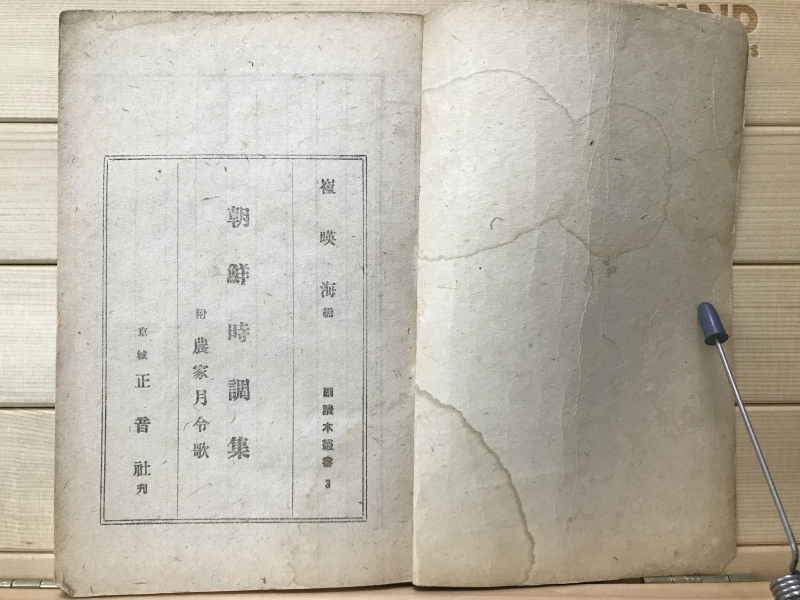 崔暎海 編
副讀本叢書 3
朝鮮時調集
附 農家月令歌
京城 正音社 刊